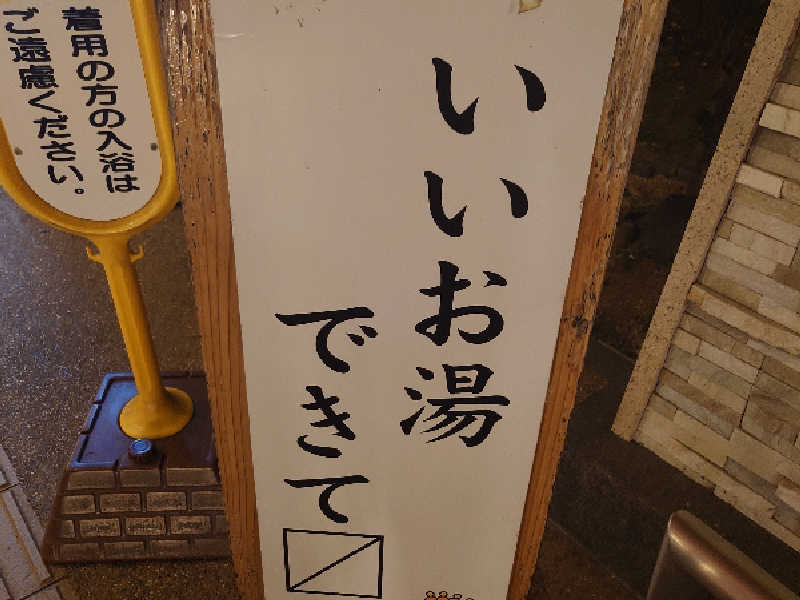 いいお湯
できて〼
着用の方の入浴は
ご遠慮ください。